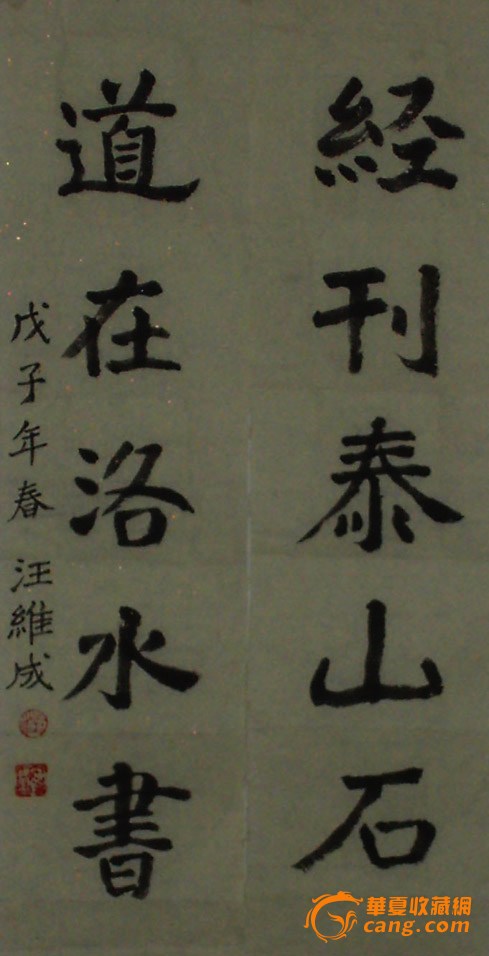 経刊泰山石
道在洛水書
戊子年春 汪維成
華夏收藏網
cang.com